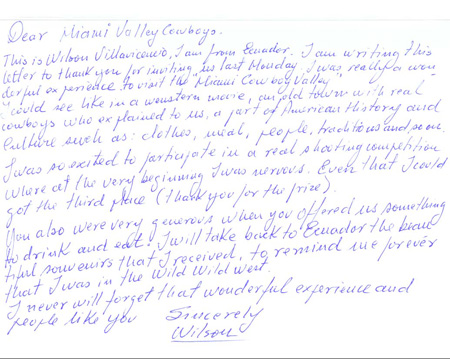 Dear Miami Valley Cowboys.
This is Wilson Villavicencio, I am from Ecuador. I am writing this
letter to thank you for inviting us last Monday. I was really a won
derful experience to visit the "Miami Cowboy Valley"
I could see like in a western movie, an old town with real
cowboys who explained to us, a part of American History and
Culture such as: clothes, meal, people, traditions and so on.
I was so excited to participate in a real shooting competition
where at the very beginning I was nervous. Even that I could
got the third place (thank you for the prize).
You also were very generous when you offered us something
to drink and eat. I will take back to Ecuador the beau
tiful souvenirs that I received, to remind me forever
that I was in the Wild Wild West.
I never will forget that wonderful experience and
people like you Sincerely
Wilson